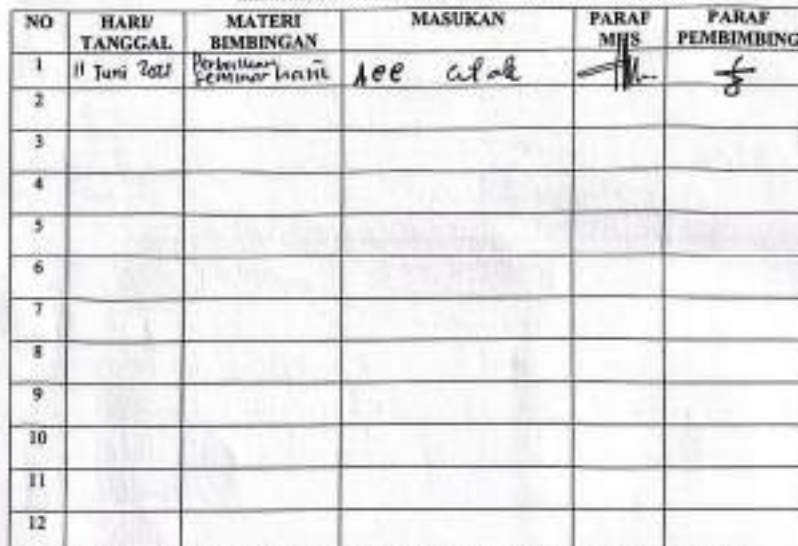 NO HARI/ TANGGAL MATERI BIMBINGAN MASUKAN PARAF MHS PARAF PEMBIMBING
1 11 Juni 2021 Perbaikan seminar hasil Acc cetak
2
3
4
5
6
7
8
9
10
11
12